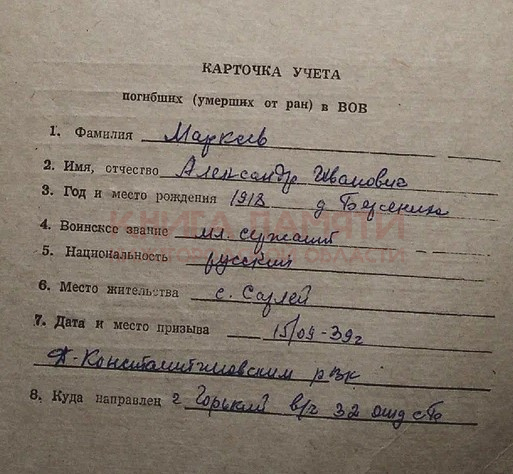 КАРТОЧКА УЧЕТА
погибших (умерших от ран) в ВОВ
1. Фамилия Маркелов
2. Имя, отчество Александр Иванович
3. Год и место рождения 1918 д
4. Воинское звание мл. сержант
5. Национальность русский
КНИГА ПАМЯТИ
ОБЛАСТИ
6. Место жительства с. Сарлей
7. Дата и место призыва 15/09-39г
Д-Константиновским рвк
8. Куда направлен г Горький в/ч 32